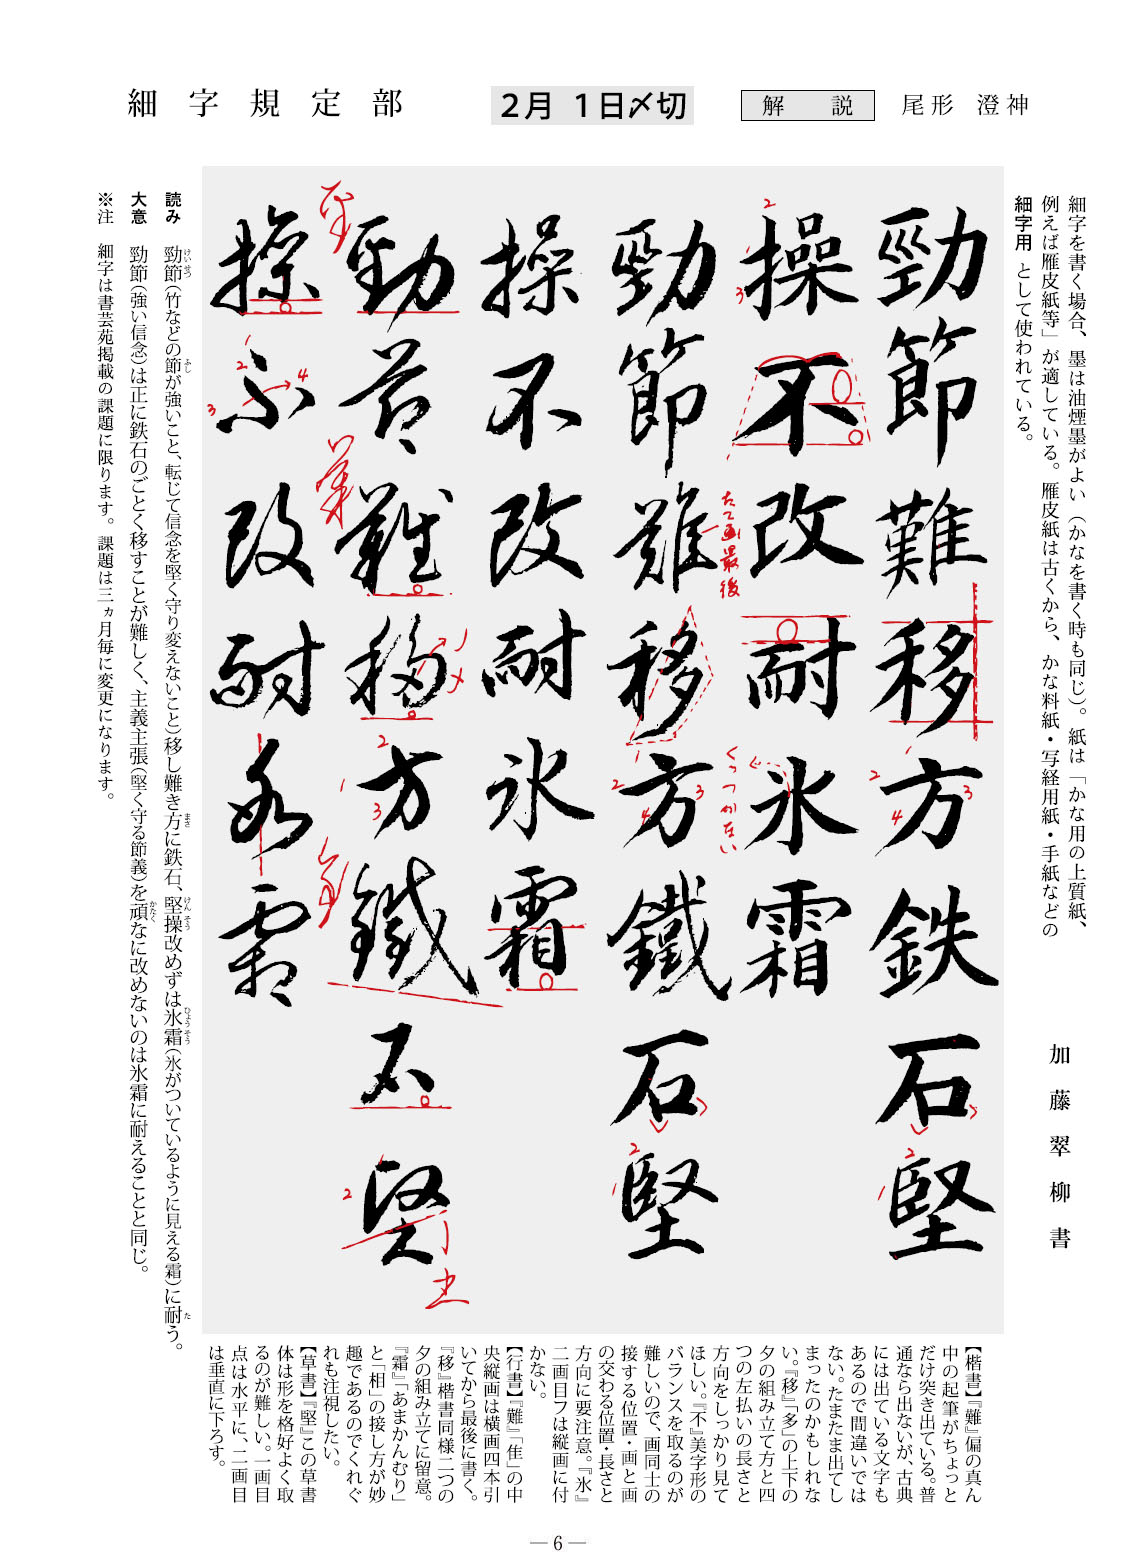 細字規定部
2月 1日〆切
解説
尾形 澄神
細字を書く場合、墨は油煙墨がよい（かなを書く時も同じ）。紙は「かな用の上質紙、
例えば雁皮紙等」が適している。雁皮紙は古くから、かな料紙・写経用紙・手紙などの
細字用 として使われている。
加藤翠柳書
勁節難移方鉄石堅
操不改耐氷霜
勁節難移方鐵石堅
操不改耐氷霜
勁節難移方鐵石堅
操不改耐氷霜
たて画最後
くっつかない
読み 勁節(竹などの節が強いこと、転じて信念を堅く守り変えないこと)移し難き方に鉄石、堅操改めずは氷霜(氷がついているように見える霜)に耐う。
けいせつ
ふし
まさ
けんそう
ひょうそう
た
大意 勁節(強い信念)は正に鉄石のごとく移すことが難しく、主義主張(堅く守る節義)を頑なに改めないのは氷霜に耐えることと同じ。
かたく
※注 細字は書芸苑掲載の課題に限ります。課題は三ヵ月毎に変更になります。
【楷書】『難』偏の真ん
中の起筆がちょっと
だけ突き出ている。普
通なら出ないが、古典
には出ている文字も
あるので間違いでは
ない。たまたま出てし
まったのかもしれな
い。『移』「多」の上下の
夕の組み立て方と四
つの左払いの長さと
方向をしっかり見て
ほしい。『不』美字形の
バランスを取るのが
難しいので、画同士の
接する位置・画と画
の交わる位置・長さと
方向に要注意。『氷』
二画目フは縦画に付
かない。
【行書】『難』「隹」の中
央縦画は横画四本引
いてから最後に書く。
『移』楷書同様二つの
夕の組み立てに留意。
『霜』「あまかんむり」
と「相」の接し方が妙
趣であるのでくれぐ
れも注視したい。
【草書】『堅』この草書
体は形を格好よく取
るのが難しい。一画目
点は水平に、二画目
は垂直に下ろす。
—6—